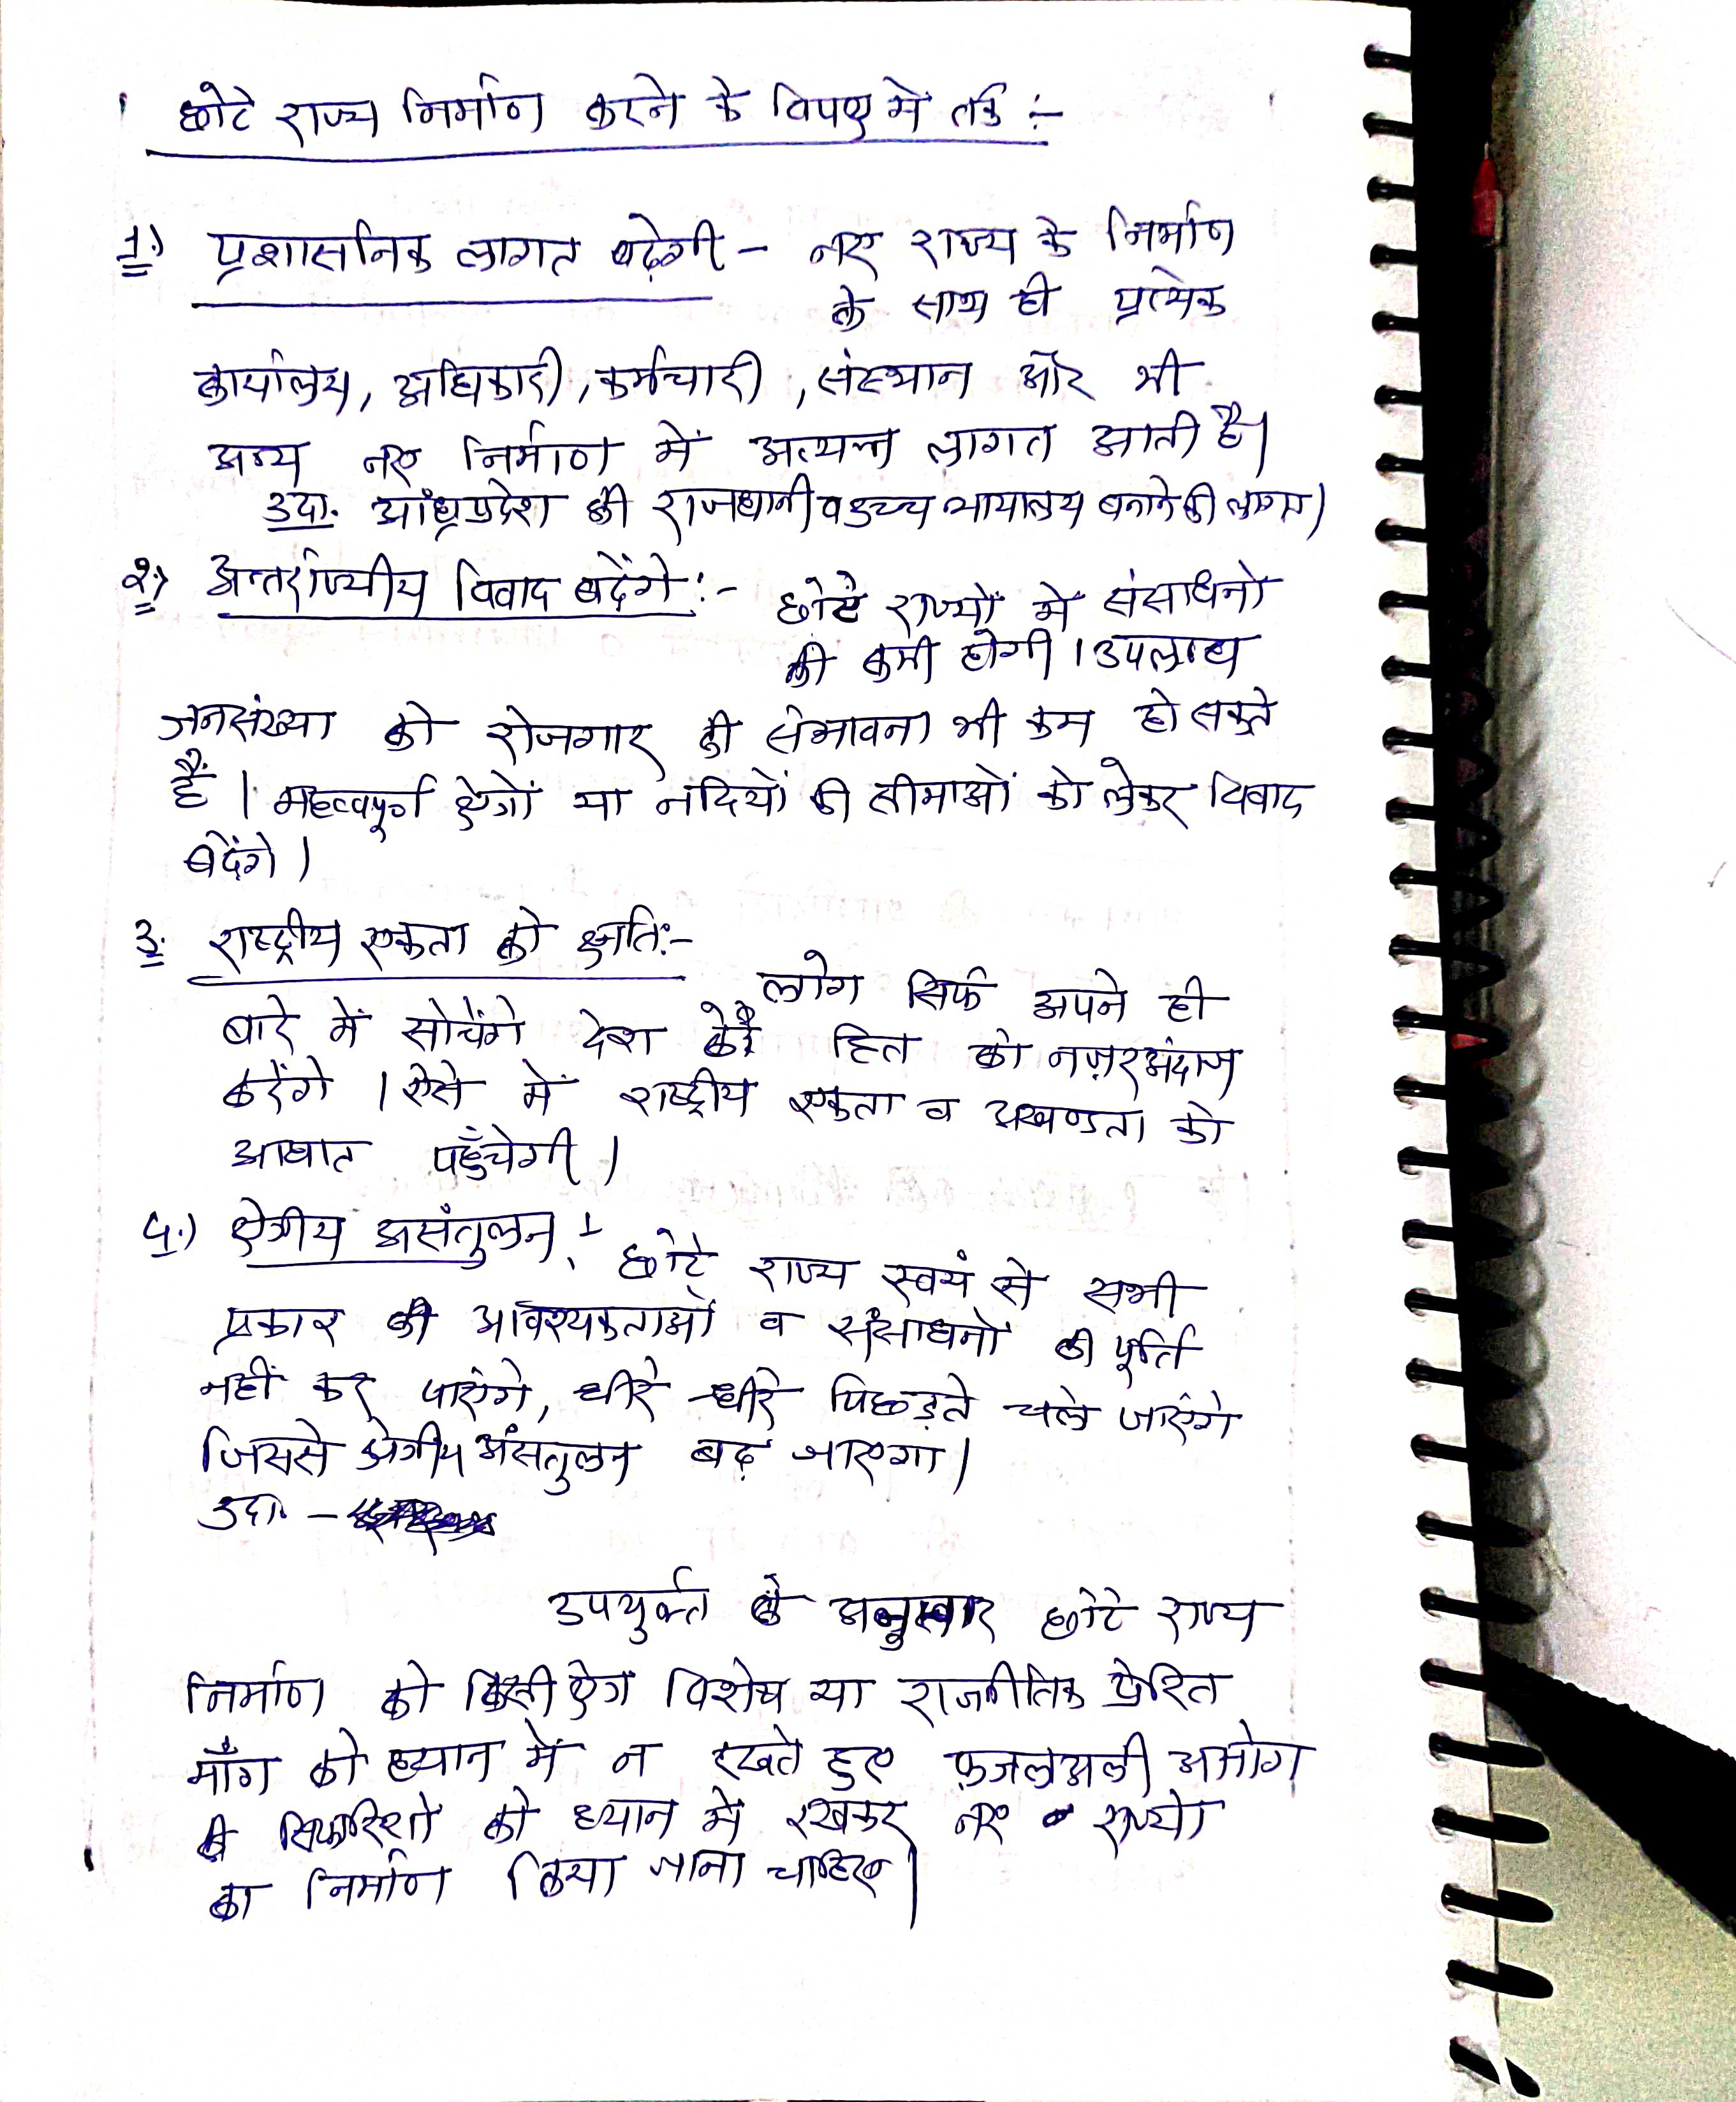 छोटे राज्य निर्माण करने के विपक्ष में तर्क :-
1.) प्रशासनिक लागत बढ़ेगी - नए राज्य के निर्माण
के साथ ही प्रत्येक
कार्यालय, अधिकारी, कर्मचारी, संस्थान और भी
अन्य नए निर्माण में अत्यन्त लागत आती है।
उदा. आंध्रप्रदेश की राजधानी व उच्च न्यायालय बनाने की लागत।
2.) अन्तर्राज्यीय विवाद बढेंगे :- छोटे राज्यों में संसाधनो
की कमी होगी। उपलब्ध
जनसंख्या को रोजगार की संभावना भी कम हो सकते
हैं। महत्वपूर्ण क्षेत्रों या नदियों की सीमाओं को लेकर विवाद
बढेंगे।
3. राष्ट्रीय एकता को क्षति:-
लोग सिर्फ अपने ही
बारे में सोचेंगे देश के हित को नज़रअंदाज
करेंगे। ऐसे में राष्ट्रीय एकता व अखण्डता को
आघात पहुँचेगी।
4.) क्षेत्रीय असंतुलन :- छोटे राज्य स्वयं से सभी
प्रकार की आवश्यकताओं व संसाधनों की पूर्ति
नहीं कर पाएंगे, धीरे-धीरे पिछड़ते चले जाएंगे
जिससे क्षेत्रीय अंसतुलन बढ़ जाएगा।
उदा. -
उपर्युक्त के अनुसार छोटे राज्य
निर्माण को किसी क्षेत्र विशेष या राजनीतिक प्रेरित
माँग को ध्यान में न रखते हुए फ़जलअली आयोग
की सिफारिशो को ध्यान में रखकर नए राज्यो
का निर्माण किया जाना चाहिए।